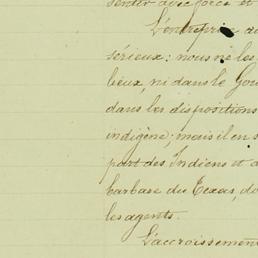 senter avec force et
L'entreprise au
sérieux: nous ne les
lieux, ni dans le Gou
dans les dispositions
indigène; mais il en s
part des Indiens et d
barbare du Texas, do
les agents.
L'accroissement